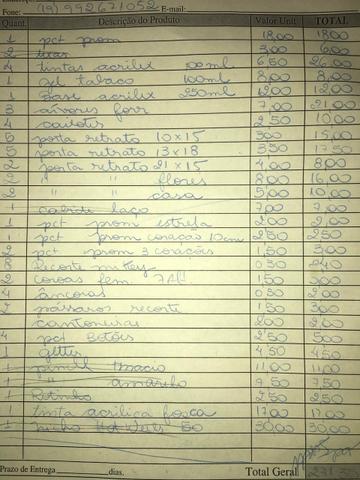 Fone: (19) 992671052 E-mail:
Quant. Descrição do Produto Valor Unit. TOTAL
1 pct prom 18,00 18,00
2 3,00 6,00
4 tintas acrilex 6,50 26,00
1 tabaco 100ml 8,00 8,00
1 Base acrilex 250ml 12,00 12,00
3 árvores 7,00 21,00
4 2,50 10,00
5 porta retrato 10x15 3,00 15,00
5 porta retrato 13x18 3,50 17,50
2 porta retrato 21x15 4,00 8,00
2 " " flores 8,00 16,00
2 " " casa 5,00 10,00
1 cabide laço 7,00 7,00
1 pct prom estrela 2,00 2,00
1 pct prom coração 10cm 2,50 2,50
2 pct prom 3 corações 1,50 3,00
8 Recorte 0,30 2,40
2 coroas 1,50 3,00
4 âncoras 0,50 2,00
pássaros recorte 1,50
cantoneiras 2,00 2,00
4 pct Botões 2,50
1 glitter 4,50 4,50
1 pincel macio 11,00 11,00
1 " amarelo 9,50 7,50
1 2,50 2,50
1 tinta acrilica fosca 17,00 17,00
1 nicho 30,00 30,00
Prazo de Entrega dias. Total Geral